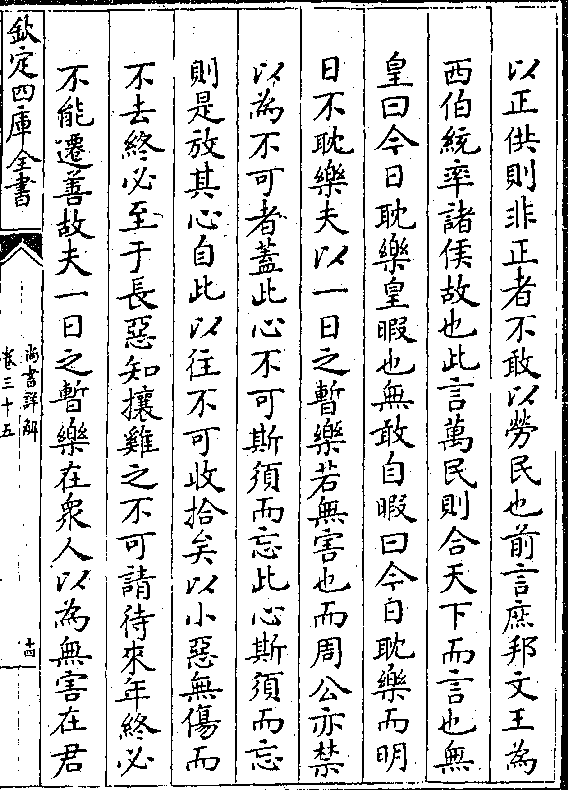 以正供則非正者不敢以勞民也前言庶邦文王為
西伯統率諸侯故也此言萬民則合天下而言也無
皇曰今日耽樂皇暇也無敢自暇曰今日耽樂而明
日不耽樂夫以一日之暫樂若無害也而周公亦禁
以為不可者蓋此心不可斯須而忘此心斯須而忘
則是放其心自此以往不可收拾矣以小惡無傷而
不去終必至于長惡知攘雞之不可請待來年終必
不能遷善故夫一日之暫樂在衆人以為無害在君
欽定四庫全書
尚書詳解
卷三十五
十四